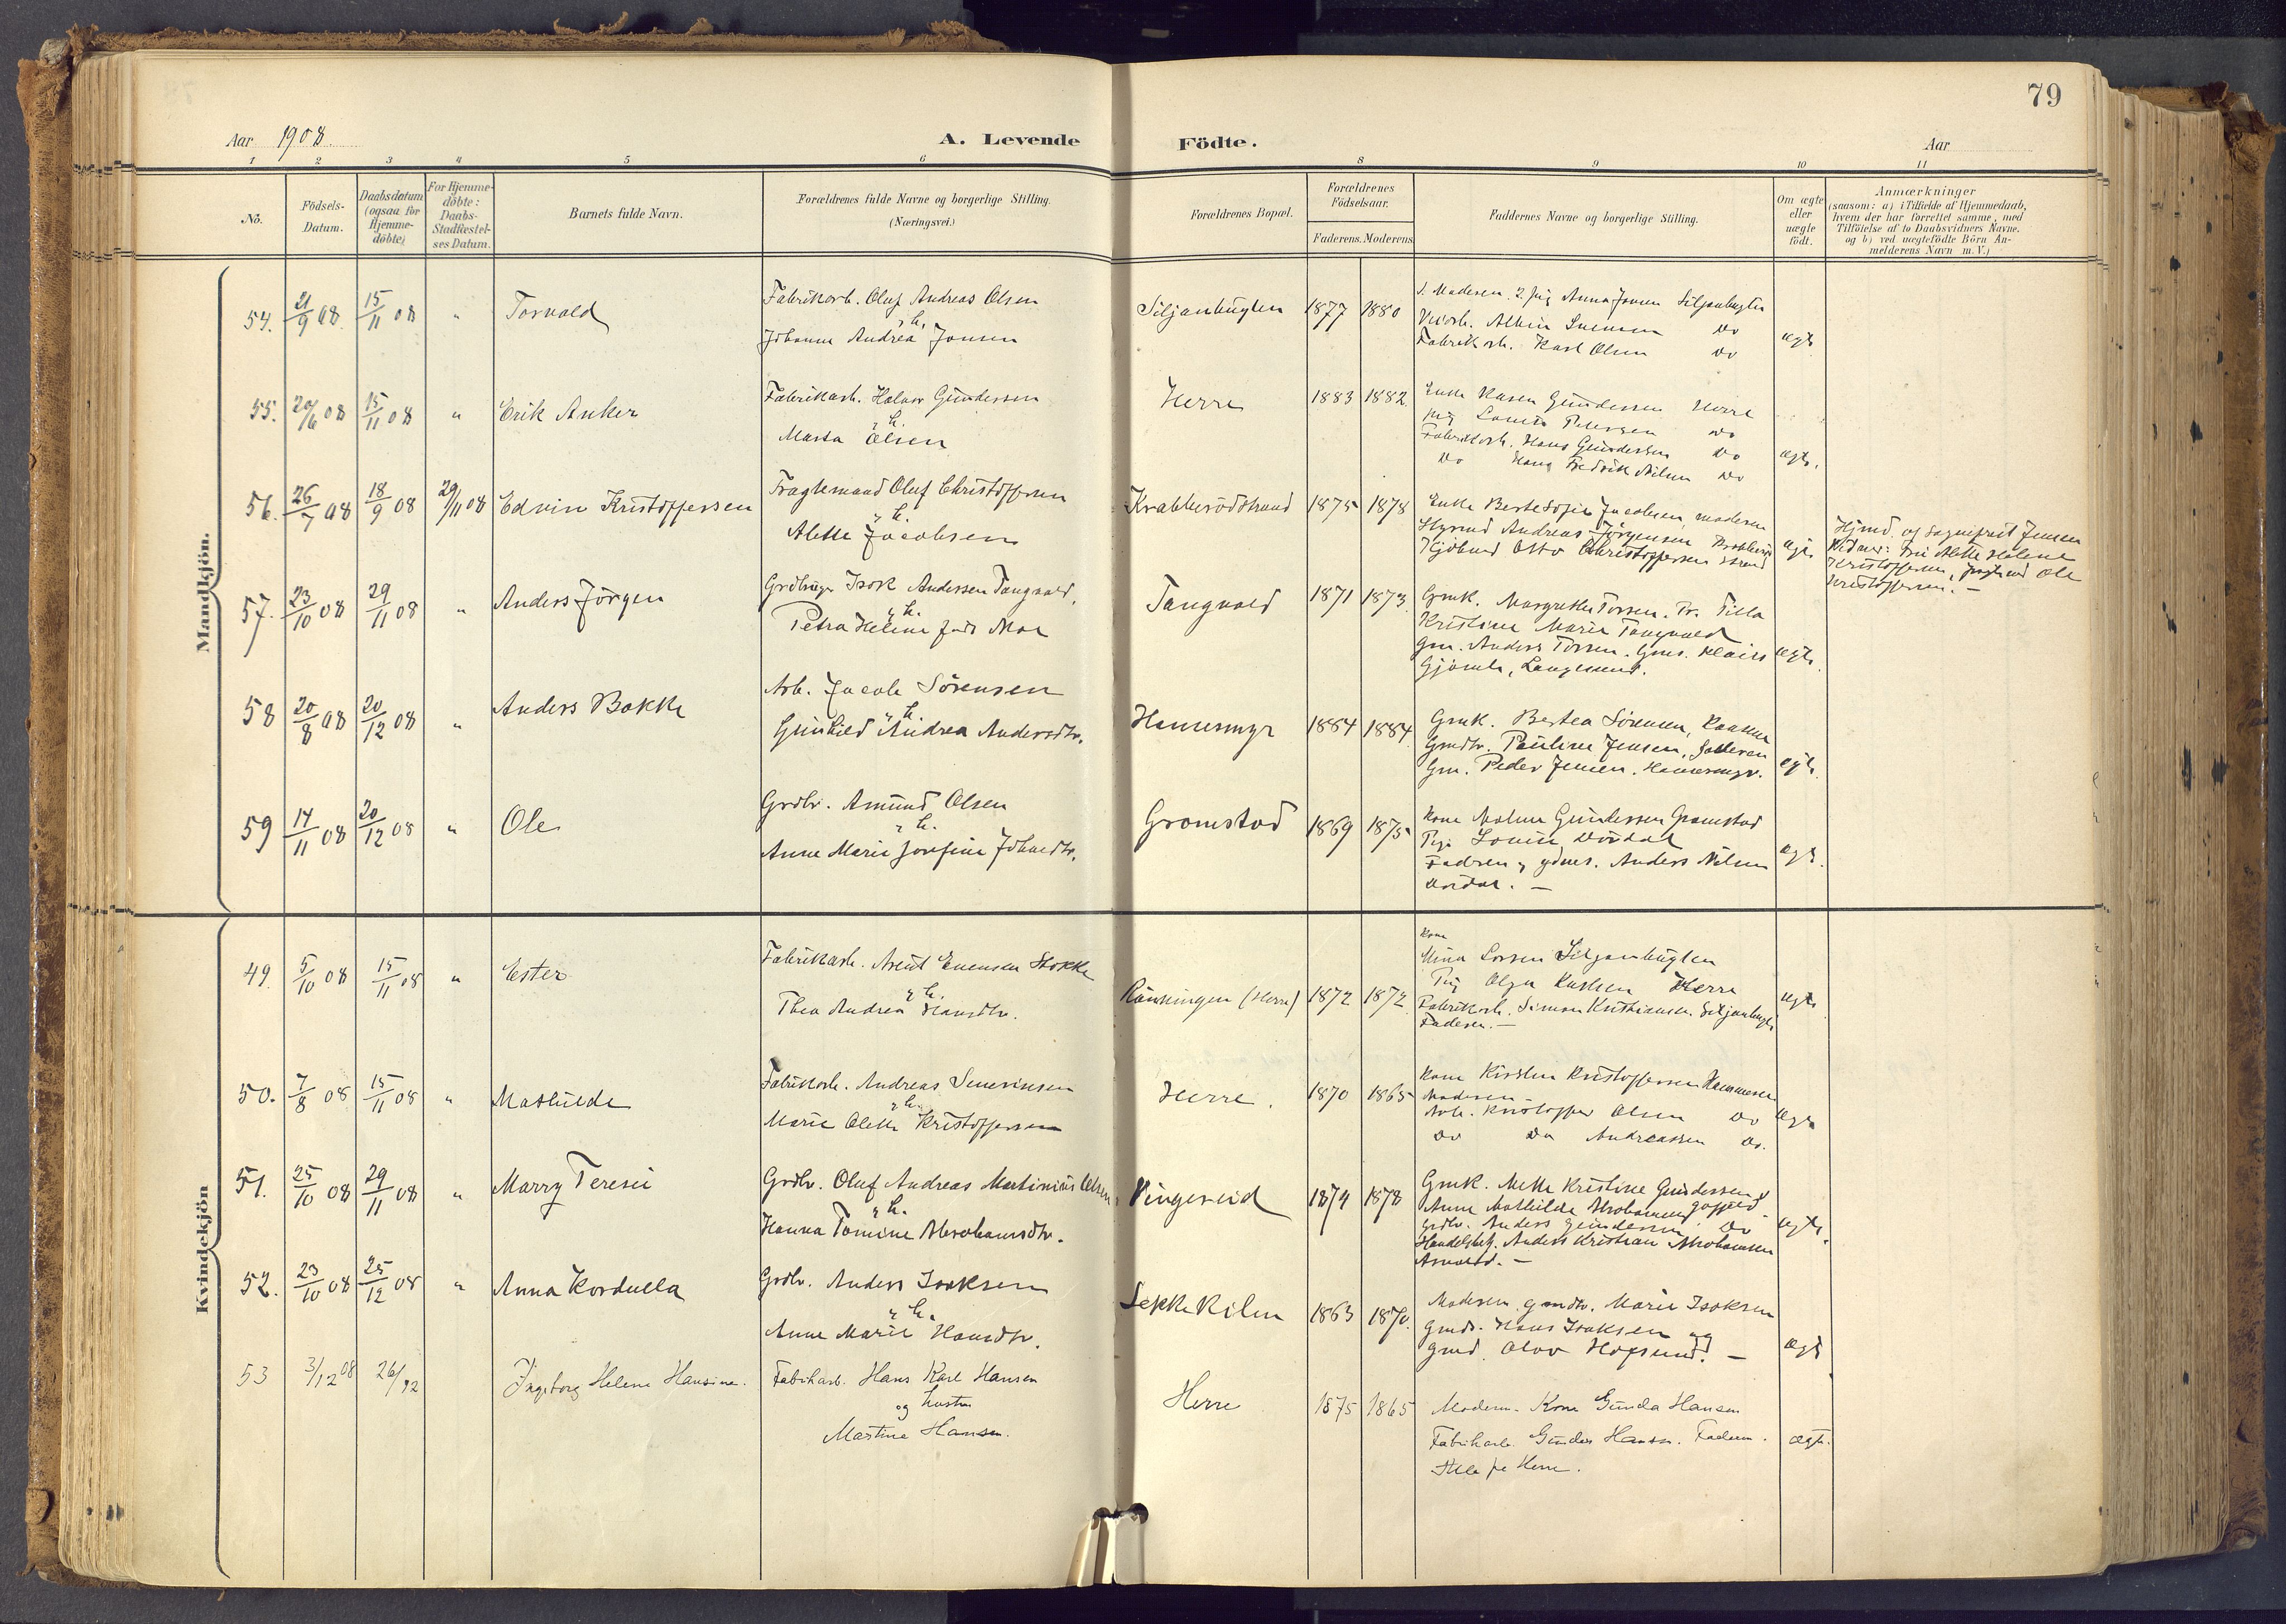 79
Aar 1908.
A. Levende Födte.
Aar
1 2 3 4 5 6 8 9 10 11
No.
Födsels-
Datum.
Daabsdatum
(ogsaa for
Hjemme-
döbte)
For Hjemme-
döbte:
Daabs-
Stadfæstel-
ses Datum.
Barnets fulde Navn.
Forældrenes fulde Navne og borgerlige Stilling.
(Næringsvei.)
Forældrenes Bopæl.
Forældrenes
Födselsaar.
Faderens. Moderens
Faddernes Navne og borgerlige Stilling.
Om ægte
eller
uægte
födt.
Anmærkninger
(saasom: a) i Tilfælde af Hjemmedaab,
hvem der har forrettet samme, med
Tilföielse af to Daabsvidners Navne.
og b) ved uægtefödte Börn An-
melderens Navn m.V.)
Mandkjön.
54. 21/9 08. 15/11 08 " Torvald
Fabrikarb. Oluf Andreas Olsen
o. h.
Johanne Andrea Jonsen
Siljanbugten 1877 1880
1. Moderen. 2. Pig Anna Jonsen Siljanbugten
Albin Do
Fabrikarb. Karl Olsen Do
ægte
55. 20/6 08 15/11 08 " Erik Anker
Fabrikarb. Halvor Gundersen
o. h.
Marta Olsen
Herre 1883 1882.
Enke Karen Gundersen Herre
Pig Petersen Do
Fabrikarb. Hans Gundersen Do
Do Hans Fredrik Nilsen Do
ægte.
56. 26/7 08 18/9 08 29/11 08 Edvin Kristoffersen
Fragtemand Oluf Christoffersen
o. h.
Alette Jacobsen
Krabberödstrand 1875 1878
Enke Berte Sofie Jacobsen, moderen
Styrmd Andreas Jörgensen
Otto Christoffersen
ægte
Hjmd. af Jensen
Alette Helene
Kristoffersen, Ole
Kristoffersen. —
57. 23/10 08 29/11 08 " Anders Jörgen
Grdbruger Isak Andersen Tangvald,
o. h.
Petra Heline Moe
Tangvald 1871 1873.
Gmk. Margrethe Torsen. Pr. Tilla
Kristine Marie Tangvald
Gm. Anders Torsen.
Langesund.
ægte.
58 20/8 08 20/12 08 " Anders Bakke
Arb. Jacob Sörensen
o. h.
Gunhild Andrea Andersdtr.
Hanesmyr 1884 1884
Gmk. Bertea Sörensen,
Gmdtr. Pauline Jensen,
Gm. Peder Jensen. Hanesmyr.
ægte.
59 14/11 08 20/12 08 " Ole
Grdbr. Amund Olsen
o. h.
Anne Marie Josefine Johnsdtr.
Gromstad 1869 1875
Kone Gundersen Gromstad
Pige Dördal
Faderen, Anders Nilsen
Dördal. —
ægt.
Kvindekjön
49. 5/10 08 15/11 08 " Ester
Fabrikarb. Arent Evensen Stokke
o. h.
Thea Andrea Hansdtr.
Rönningen (Herre) 1872 1872
Kone
Mina Larsen Siljanbugten
Pig Olga Karlsen Herre
Fabrikarb. Simon Kristiansen Siljanbugt
Faderen. —
ægte
50. 7/8 08 15/11 08 " Mathilde
Fabrikarb. Andreas Severinsen
o. h.
Marie Olette Kristoffersen
Herre. 1870 1865
Kone Kirsten Kristoffersen
Moderen —
Arb. Kristoffer Olsen Do
Do Do Andreassen Do.
ægte
51. 25/10 08 29/11 08 " Marry Teresie
Grdbr. Oluf Andreas Martinius Olsen
o. h.
Hanna Tomine Abrahamsdtr.
Vingereid 1874 1878
Gmk. Mette Kristine Gundersen,
Anne Mathilde Abrahamsen
Grdbr. Anders Gundersen Do
Anders Kristian Abrahamsen
Aasvald. —
ægte.
52. 23/10 08 25/12 08 " Anna Kordulla
Grdbr. Anders Isaksen
o. h.
Anne Marie Hansdtr.
Lekkekilen 1863 1870.
Moderen, gmdtr. Marie Isaksen
Gmds. Hans Isaksen og
gmd. Olav —
ægt
53 3/12 08 26/12 Ingeborg Helene Hansine.
Fabrikarb. Hans Karl Hansen
og hustru
Martine Hansen.
Herre 1875 1865
Moderen. Kone Gunda Hansen
Fabrikarb. Gunder Hansen. Faderen.
Alle fra Herre.
ægte.